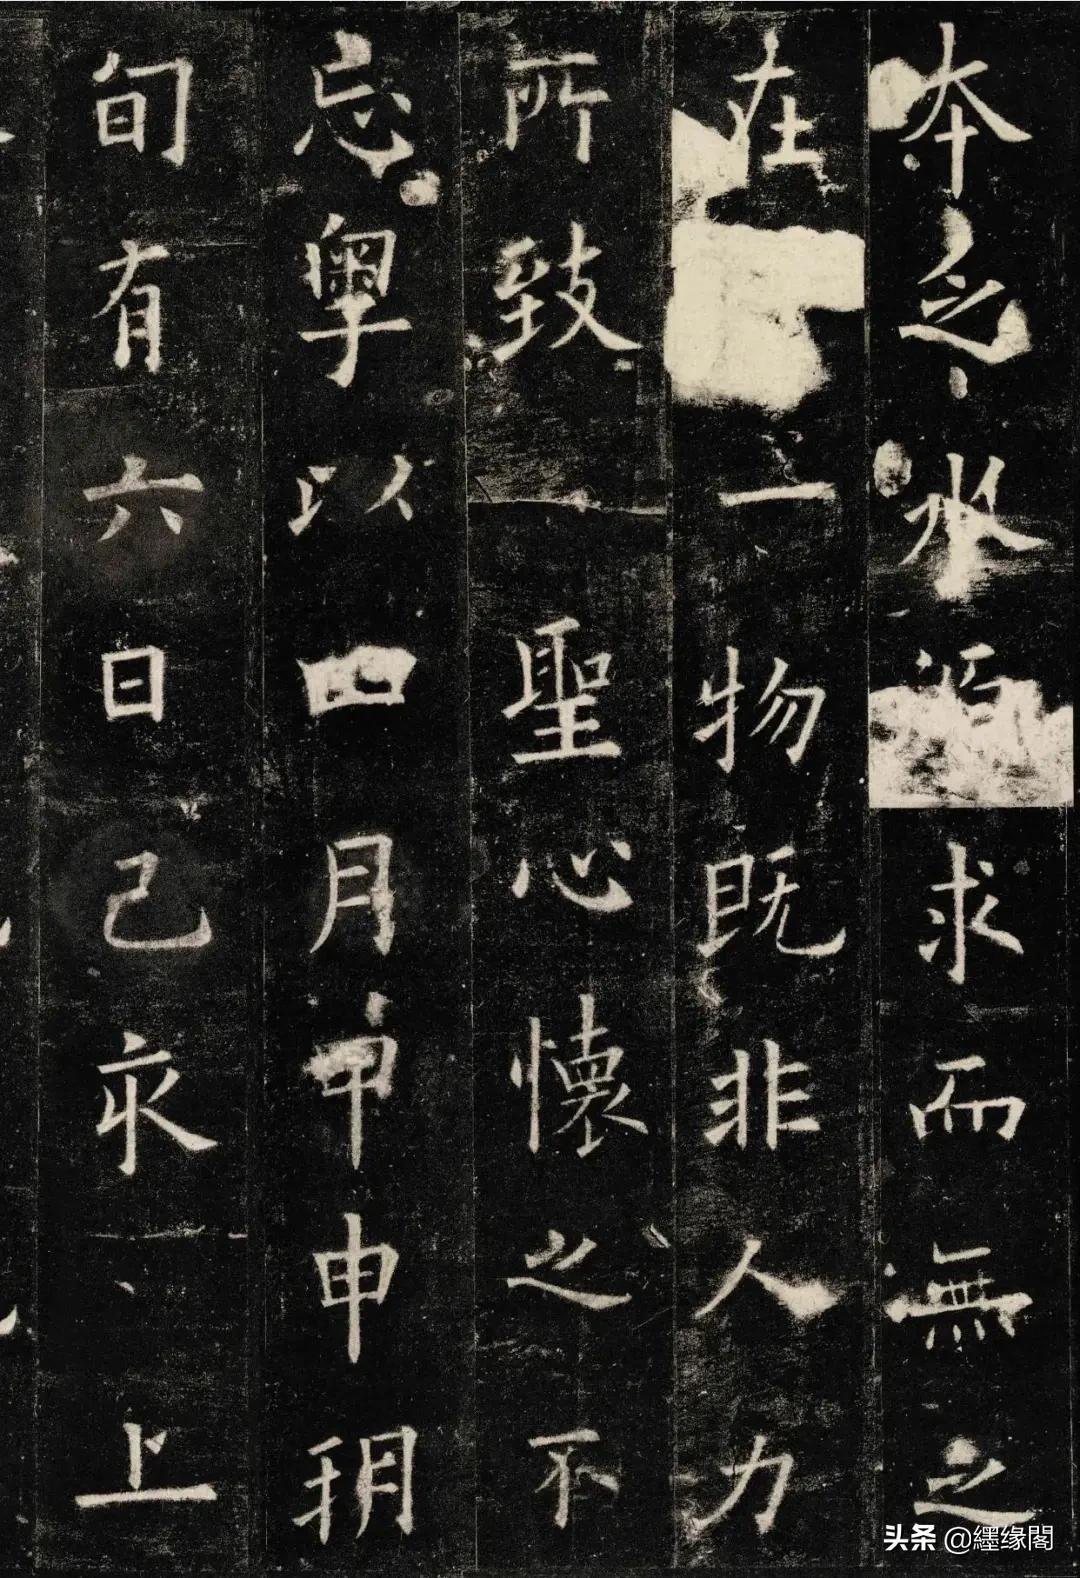 本之水[泉]求而無之
在一物既非人力
所致聖心懷之不
忘粤以四月甲申朔
旬有六日己亥上
头条 @纆缘閣